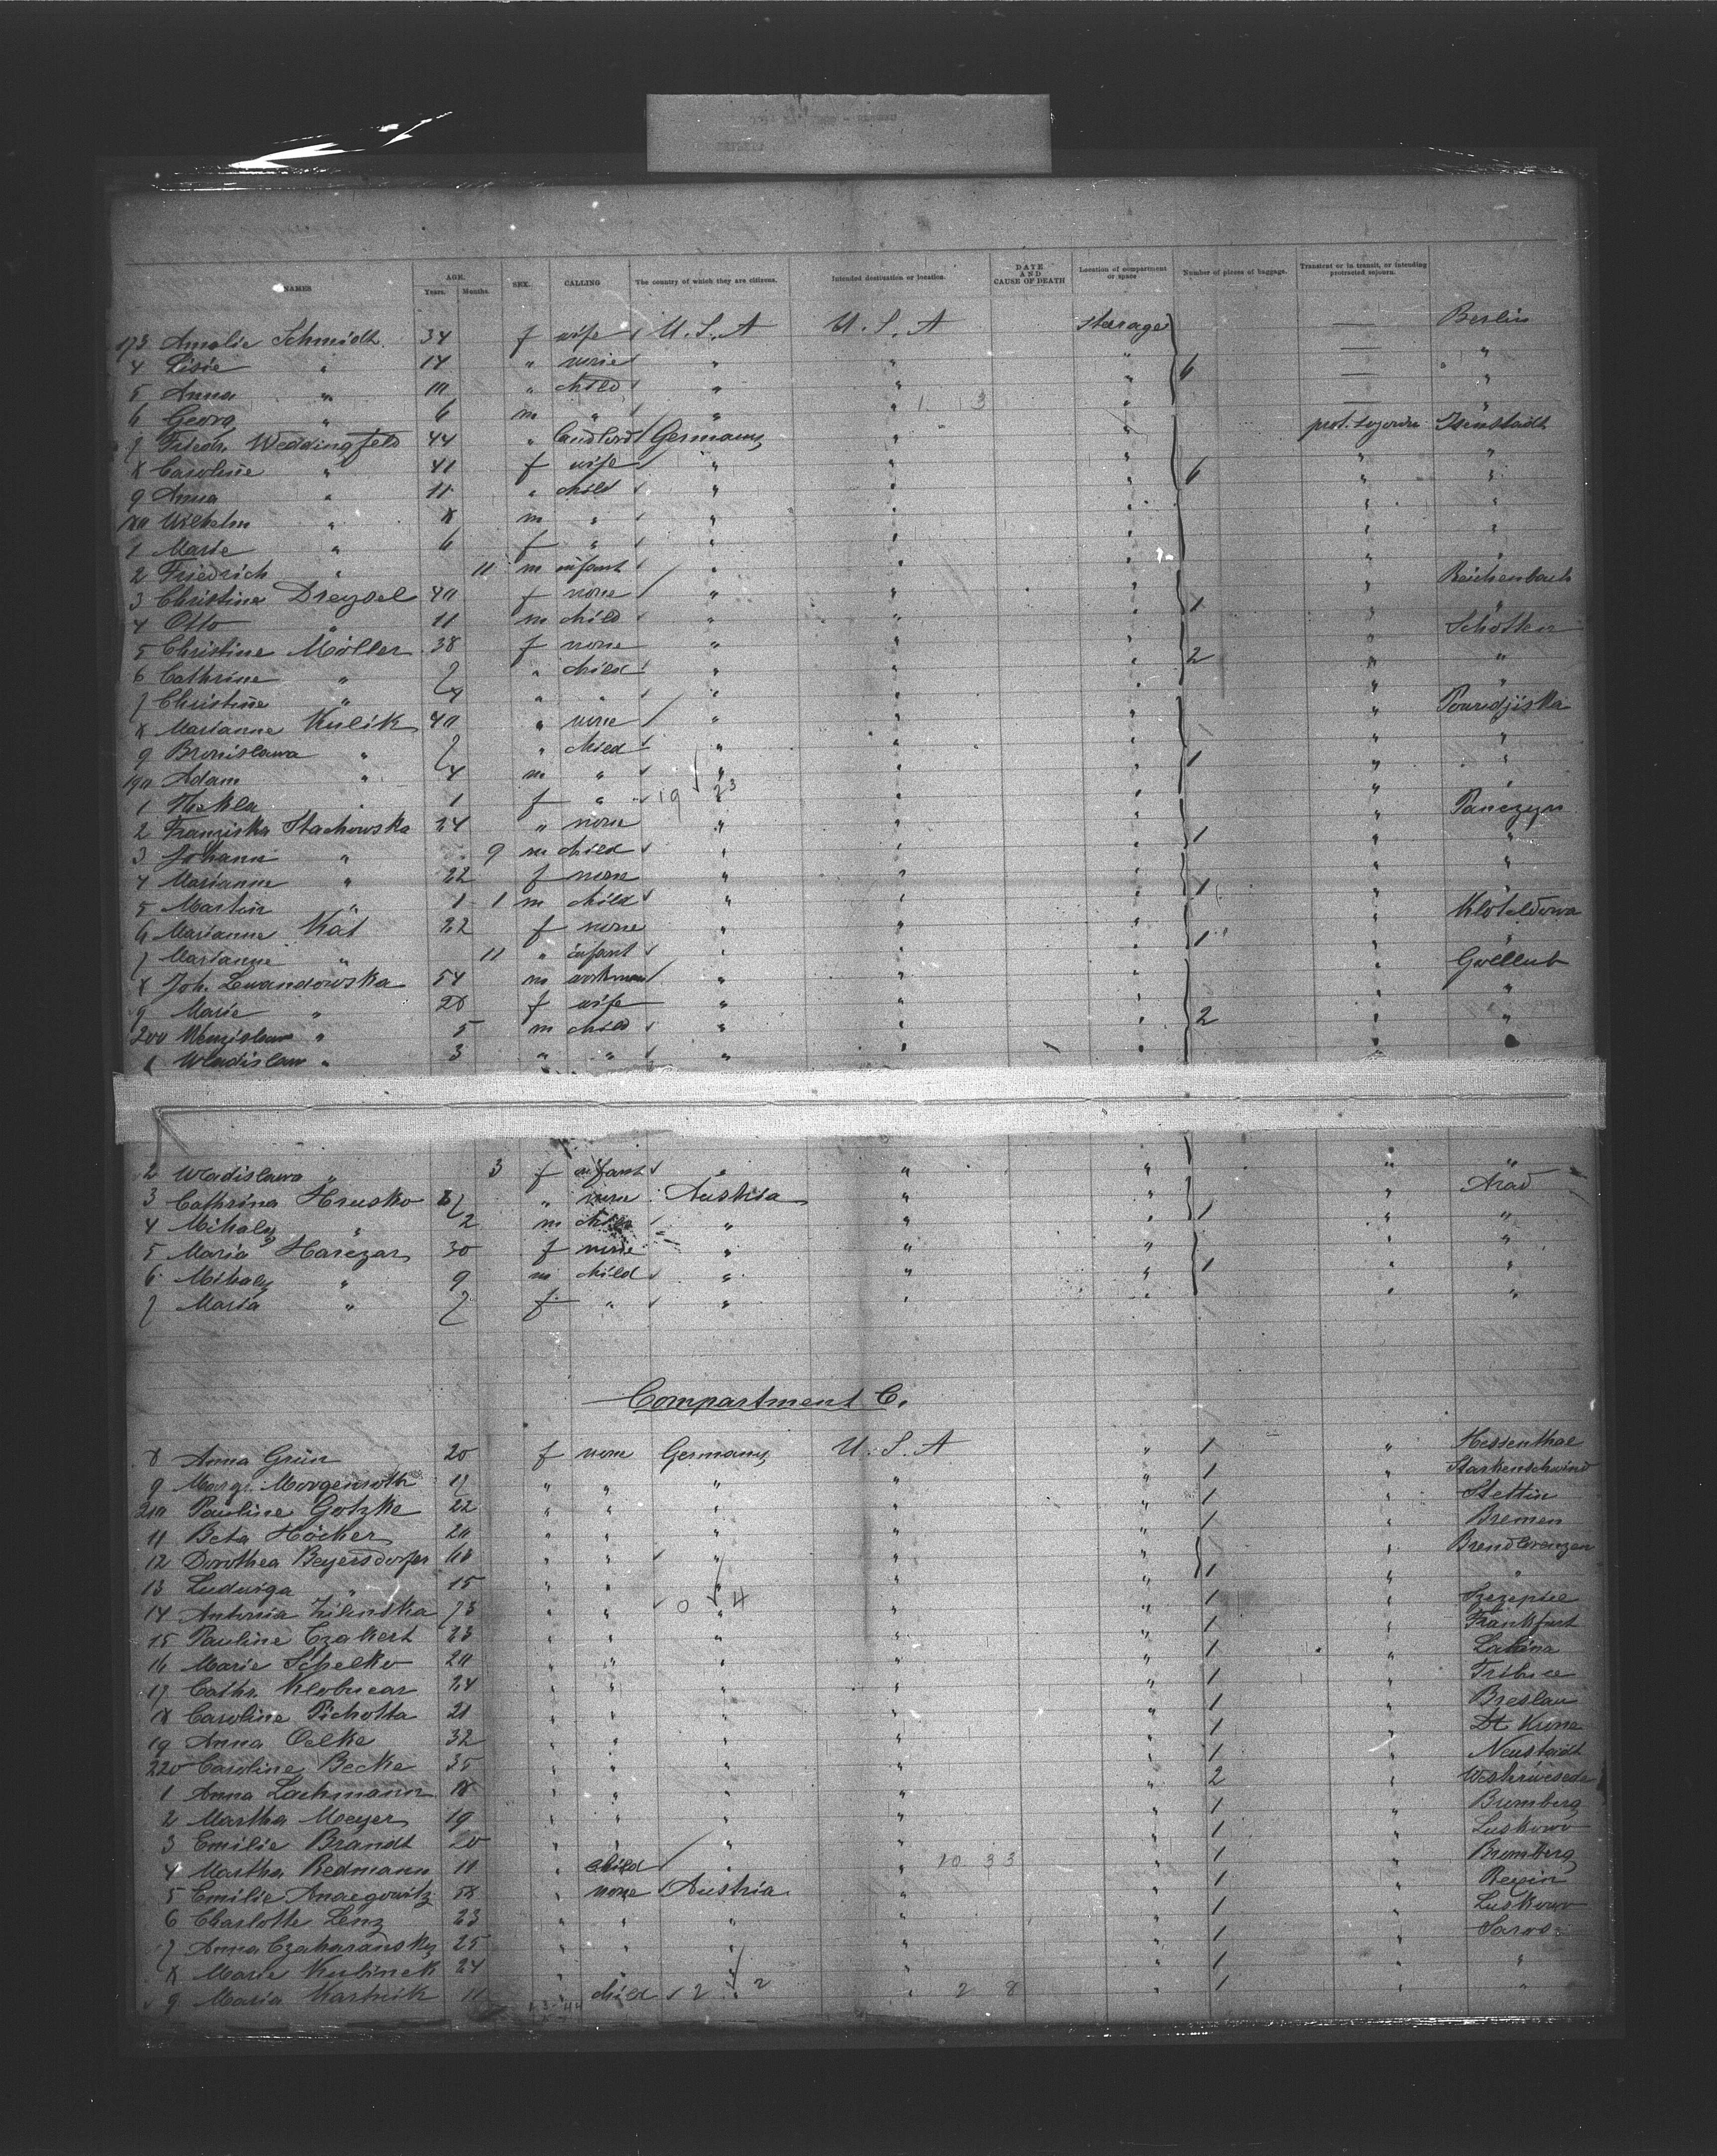 NAMES AGE. Years. Months. SEX. CALLING The country of which they are citizens. Intended destination or location. DATE AND CAUSE OF DEATH Location of compartment or space Number of pieces of baggage. Transient or in transit, or intending protracted sojourn.
173 Amalie Schmidt 34 f wife U. S. A U. S. A steerage — Berlin
4 Lisie " 14 " none " " " 6 — "
5 Anna " " child " " " — "
6 Georg " 6 m " " " " "
7 Friedr. Weddingfeld 44 " landlord Germany " " prot. sojourn
8 Caroline " 41 f wife " " " 6 " "
9 Anna " 11 " child " " " " "
180 Wilhelm " 8 m " " " " " "
1 Marie " 6 f " " " " " "
2 Friedrich " 11 m infant " " " " "
3 Christine Dreysel 40 f none " " " 1 " Reichenbach
4 Otto " 11 m child " " " " "
5 Christine Möller 38 f none " " " 2 " Schotten
6 Cathrine " 7 " child " " " " "
7 Christine " 4 " " " " " " "
8 Marianne Kulik 40 " none " " " "
9 Bronislawa " 7 " child " " " 1 " "
190 Adam " 4 m " " " " " "
1 Thekla 1 f " 19 23 " " " "
2 Franziska Stachowska 24 " none " " " 1 "
3 Johann " 9 m child " " " " "
4 Marianne " 22 f none " " " 1 " "
5 Martin " 1 1 m child " " " " "
6 Marianne Kat 22 f none " " " 1 "
7 Marianne " 11 " infant " " " " "
8 Joh. Lewandowska 54 m workman " " " 2 " Gollub
9 Marie " 28 f wife " " " " "
200 " 5 m child " " " " "
1 Wladislaw " 3 " " " " " " "
2 Wladislawa " 3 f infant " " " " "
3 Cathrina Hrusko 27 " none Austria " " 1 " Arad
4 Mihaly " 2 m child " " " " "
5 Maria Harczar 30 f none " " " 1 " "
6 Mihaly " 9 m child " " " " "
7 Maria " 7 f " " " " " "
Compartment C.
8 Anna Grün 20 f none Germany U. S. A " 1 " Hessenthal
9 Margr. Morgenroth 17 " " " " " 1 " Starkenschwind
210 Pauline Gotzke 22 " " " " " 1 " Stettin
11 Beta Höcker 20 " " " " " 1 " Bremen
12 Dorothea Beyersdorfer " " " " " 1 " Brendlorenzen
13 Ludwiga " 15 " " " " " " "
14 Antonia Zilinska " " 0 4 " " " 1 "
15 Pauline Czakert 23 " " " " " 1 " Frankfurt
16 Marie Schelko 20 " " " " " 1 "
17 Cathr. Klobucar 24 " " " " " 1 " Tribuce
18 Caroline Pichotta 21 " " " " " 1 " Breslau
19 Anna Oelke 32 " " " " " 1 " Dt. Krone
220 Caroline Becke 35 " " " " " 1 " Neustadt
1 Anna Lachmann 18 " " " " " 2 "
2 Martha Meyer 19 " " " " " 1 " Bromberg
3 Emilie Brandt 20 " " " " " 1 " Luskowo
4 Martha Redmann 11 " child " " 10 33 " 1 " Bromberg
5 Emilie 58 none Austria " " 1 "
6 Charlotte Lenz 23 " " " " " 1 " Luskowo
7 Anna Czaharansky 25 " " " " " 1 " Saros
8 Marie Kubinek 24 " " " " " 1 " "
9 Maria Kartnik 11 " child 2 2 " 2 8 " 1 " "